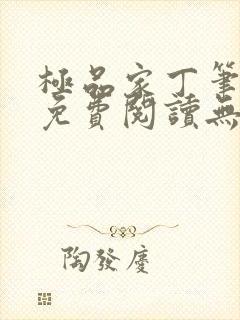 極品家丁筆
免費閱讀無
陶發慶